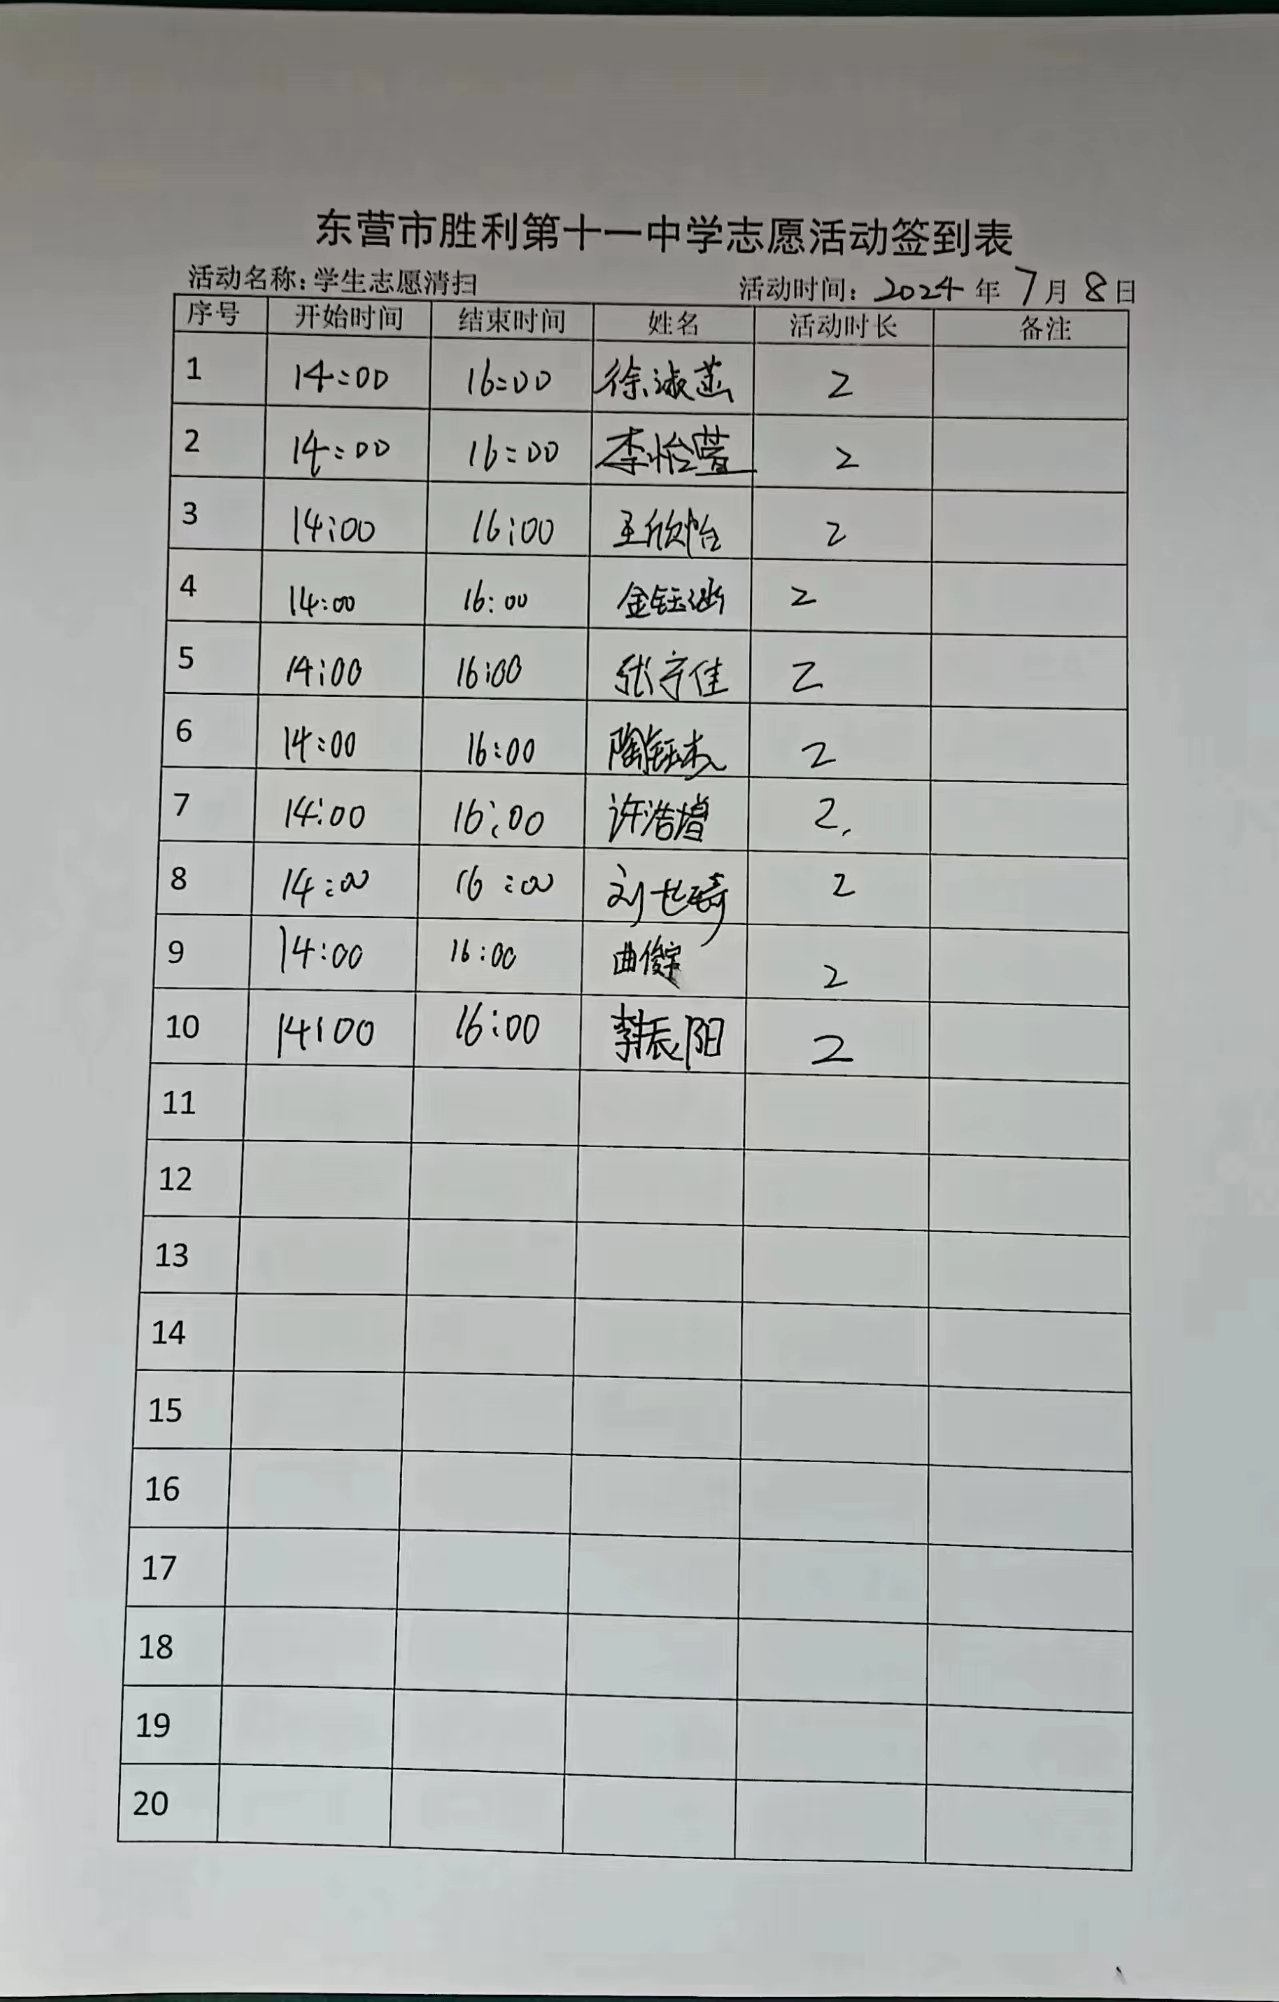 东营市胜利第十一中学志愿活动签到表
活动名称:学生志愿清扫 活动时间: 2024 年 7 月 8 日
序号 开始时间 结束时间 姓名 活动时长 备注
1 14:00 16:00 徐淑菡 2
2 14:00 16:00 李怡萱 2
3 14:00 16:00 王欣怡 2
4 14:00 16:00 金钰涵 2
5 14:00 16:00 张守佳 2
6 14:00 16:00 陶钰杰 2
7 14:00 16:00 许浩增 2.
8 14:00 16:00 刘 2
9 14:00 16:00 曲俊宇 2
10 14:00 16:00 李辰阳 2
11
12
13
14
15
16
17
18
19
20